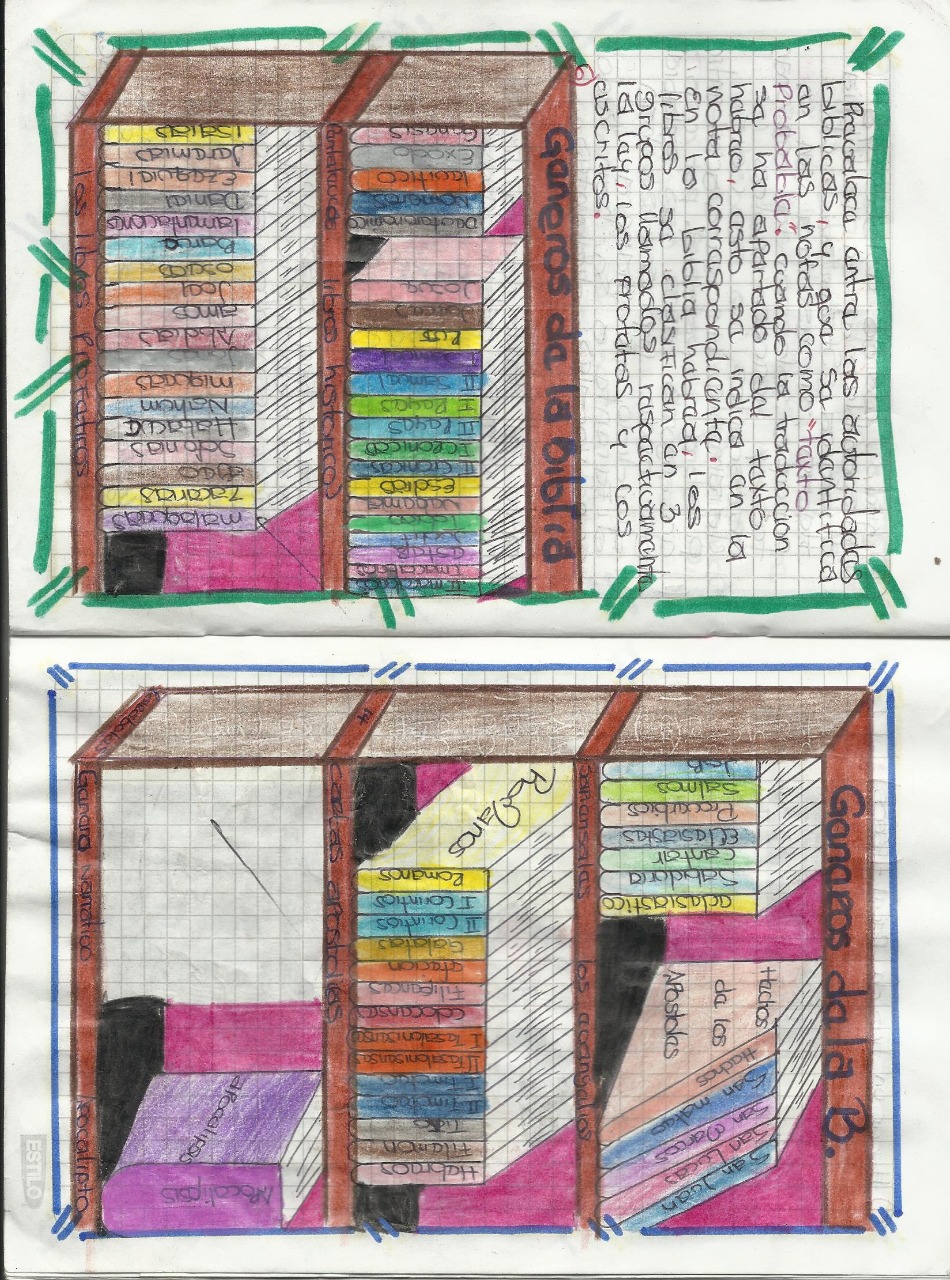 Prevalece entre las autoridades
biblicas, y que se identifica
en las notas como "texto
probable". cuando la traduccion
se ha apartado del texto
hebreo, esto se indica en la
nota correspondiente.
En la biblia hebrea, les
libros se clasifican en 3
grupos llamados respectivamente
la ley, los profetas y los
escritos.
Generos de la biblia
Genesis
Exodo
levitico
Numeros
Deuteronomio
Josue
Jueces
Rut
II Samuel
I Reyes
II Reyes
I Cronicos
II Cronicas
Esdras
Nehemia
ester
Pentateuco libro historicos
Isaias
Jeremias
Ezequiel
Daniel
lamentaciones
Baruc
oseas
Joel
amos
Abdias
miqueas
Nahum
Habacuc
Sofonias
ageo
zacarias
malaquias
los libros Profeticos
Generos de la B.
Job
Salmos
Proverbios
Eclesiastes
cantar
Sabiduria
eclesiastico
Hechos
de los
Apostoles
Hechos
San mateo
San Marcos
San Lucas
San Juan
Sapiensales los evangelios
Romanos
Romanos
I Corintios
II Corintios
Galatas
efecion
Filipences
colocences
I tesalonisenses
II tesalonisenses
I timoteo
II timoteo
Tito
Filemon
Hebreos
Cartas apostolicas
apocalipsis
Apocalipsis
Genero narratico apocaliptico
ESTILO